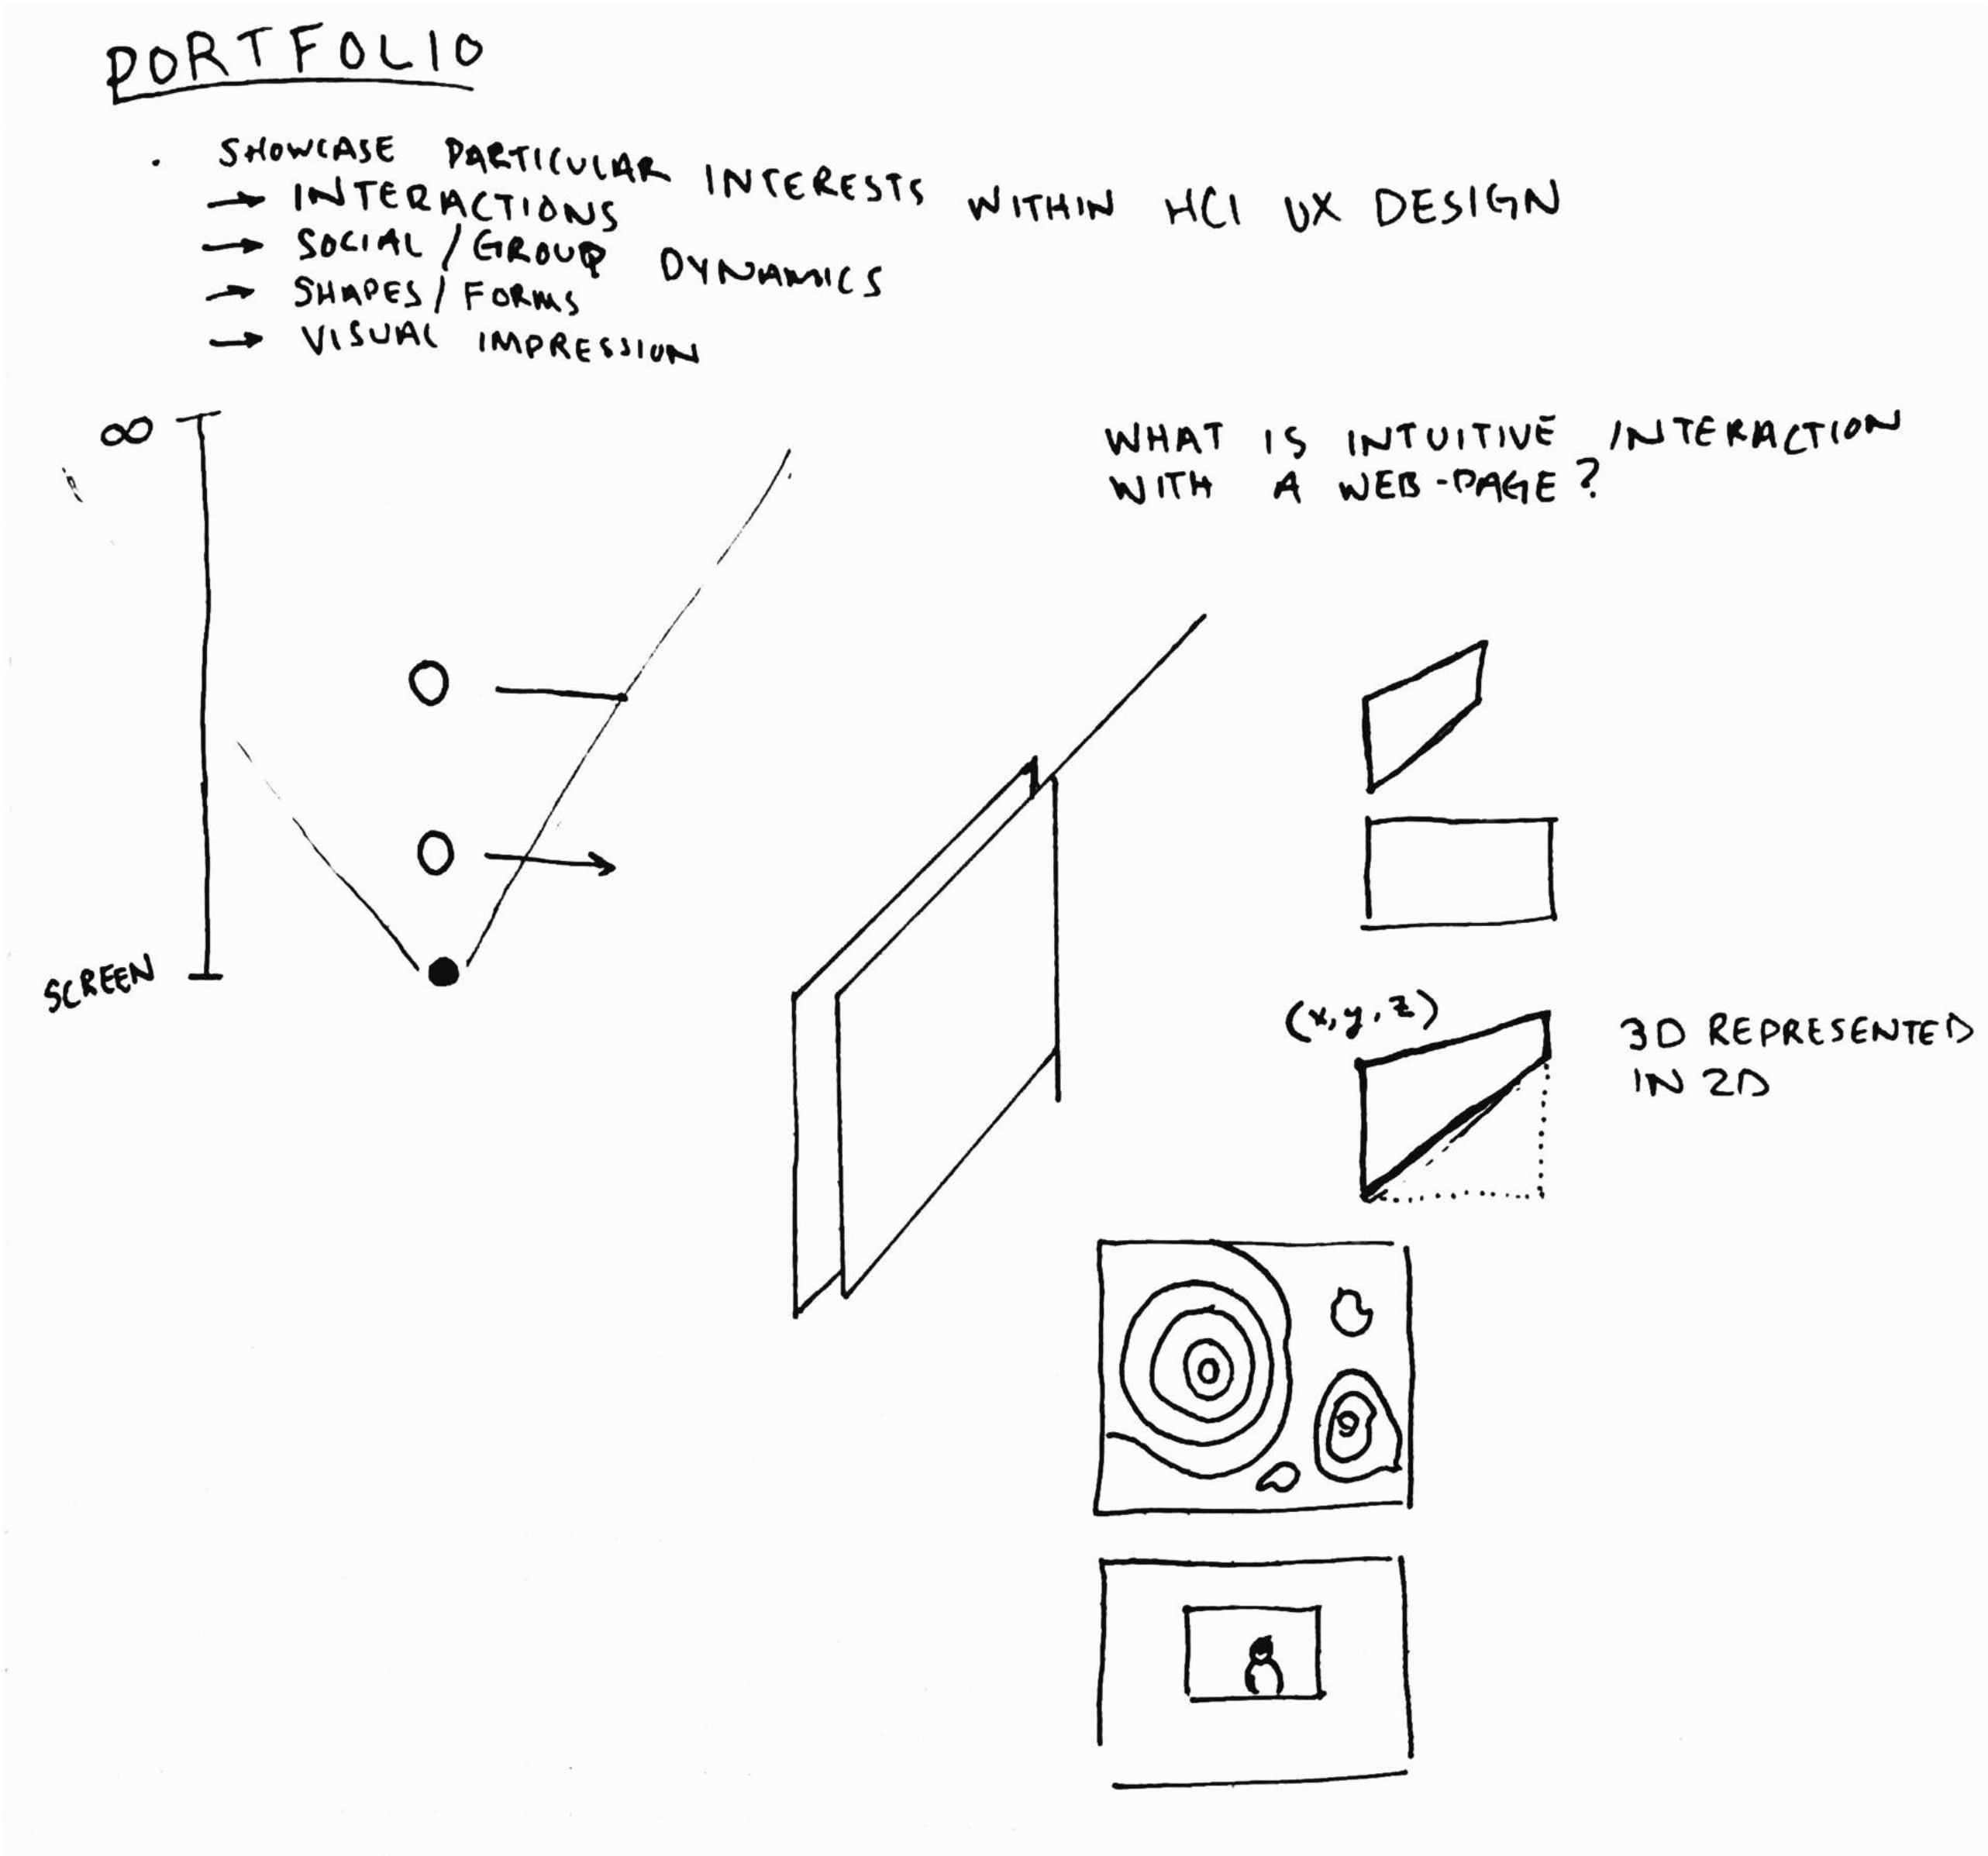 PORTFOLIO
· SHOWCASE PARTICULAR INTERESTS WITHIN HCI UX DESIGN
→ INTERACTIONS
→ SOCIAL/GROUP DYNAMICS
→ SHAPES/FORMS
→ VISUAL IMPRESSION
∞
WHAT IS INTUITIVE INTERACTION
WITH A WEB-PAGE?
SCREEN
(x,y,z)
3D REPRESENTED
IN 2D